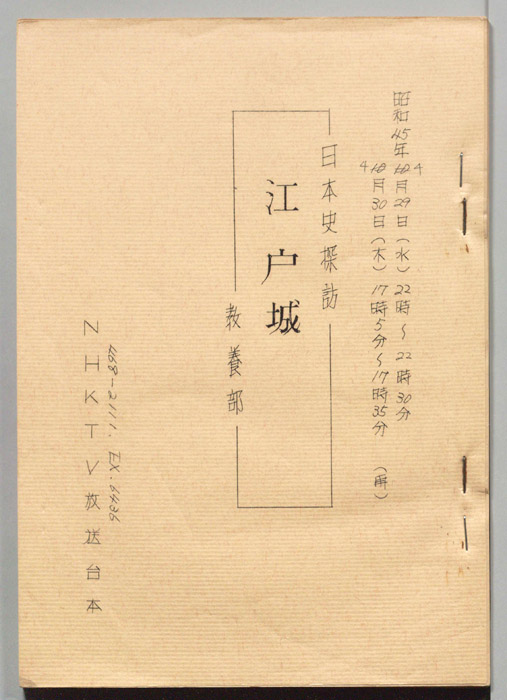 昭和45年10 4月29日(水)22時~22時30分
4 10月30日(木)17時5分~17時35分(再)
日本史探訪
江戸城
教養部
468-2111. EX.6436
NHKTV放送台本